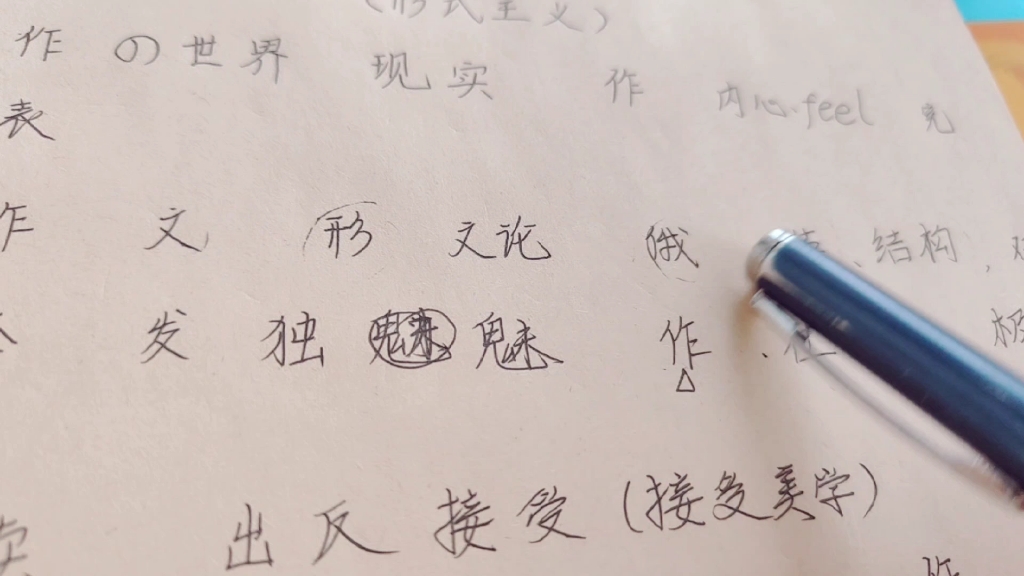 (形式主义)
作 の世界 现实 作 内心feel
表
作 文 形 文论 俄 、结构,
发 独 魅 作、
出反 接受 (接受美学)